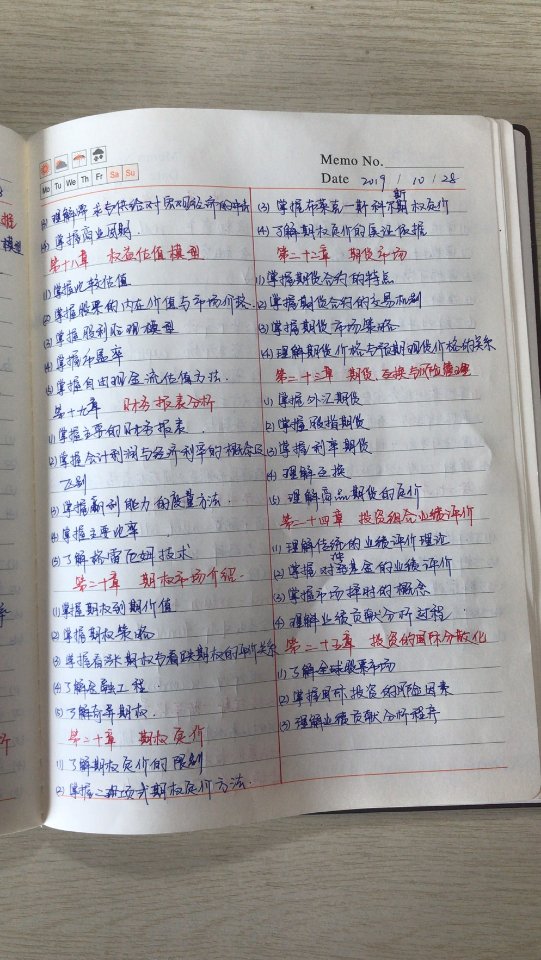 Memo No.
Mo Tu We Th Fr Sa Su
Date 2019 / 10 / 28
(3) 理解需求与供给对宏观经济的冲击
(4) 掌握商业周期
第十八章 权益估值模型
(1) 掌握比较估值
(2) 掌握股票的内在价值与市场价格.
(3) 掌握股利贴现模型
(4) 掌握市盈率
(5) 掌握自由现金流估值方法.
第十九章 财务报表分析
(1) 掌握主要的财务报表.
(2) 掌握会计利润与经济利率的概念区
别
(3) 掌握赢利能力的度量方法.
(4) 掌握主要比率.
(5) 了解格雷厄姆技术
第二十章 期权市场介绍.
(1) 掌握期权到期价值
(2) 掌握期权策略
(3) 掌握看涨期权与看跌期权的平价关系
(4) 了解金融工程.
(5) 了解奇异期权.
第二十章 期权定价
(1) 了解期权定价的限制
(2) 掌握二项式期权定价方法.
(3) 掌握布莱克-斯科尔斯期权定价
(4) 了解期权定价的实证依据
第二十二章 期货市场
(1) 掌握期货合约的特点
(2) 掌握期货合约的交易机制
(3) 掌握期货市场策略
(4) 理解期货价格与预期现货价格的关系
第二十三章 期货、互换与风险管理
(1) 掌握外汇期货
(2) 掌握股指期货
(3) 掌握利率期货
(4) 理解互换
(5) 理解商品期货的定价
第二十四章 投资组合业绩评价
(1) 理解传统的业绩评价理论
(2) 掌握对冲基金的业绩评价
(3) 掌握市场择时的概念
(4) 理解业绩贡献分析过程.
第二十五章 投资的国际分散化
(1) 了解全球股票市场
(2) 掌握国际投资的风险因素
(3) 理解业绩贡献分析程序